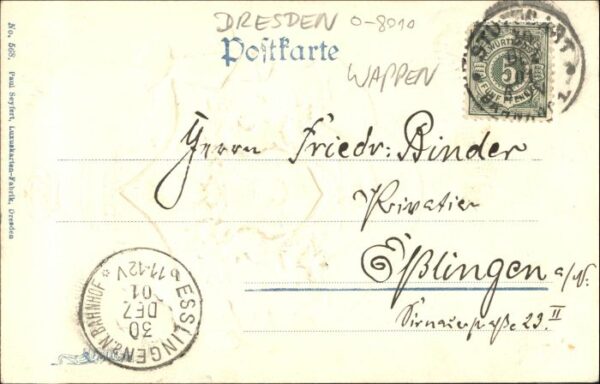 DRESDEN 0-8010
Postkarte
WAPPEN
STUTTGART
WÜRTTEMB
5
No. 568. Paul Seyfert, Luxuskarten-Fabrik, Dresden
Herrn Friedr: Binder
Privatier
Eßlingen a/N.
Sirnauerstraße 23. II
ESSLINGEN a/N. BAHNHOF
30
DEZ
01
11-12V